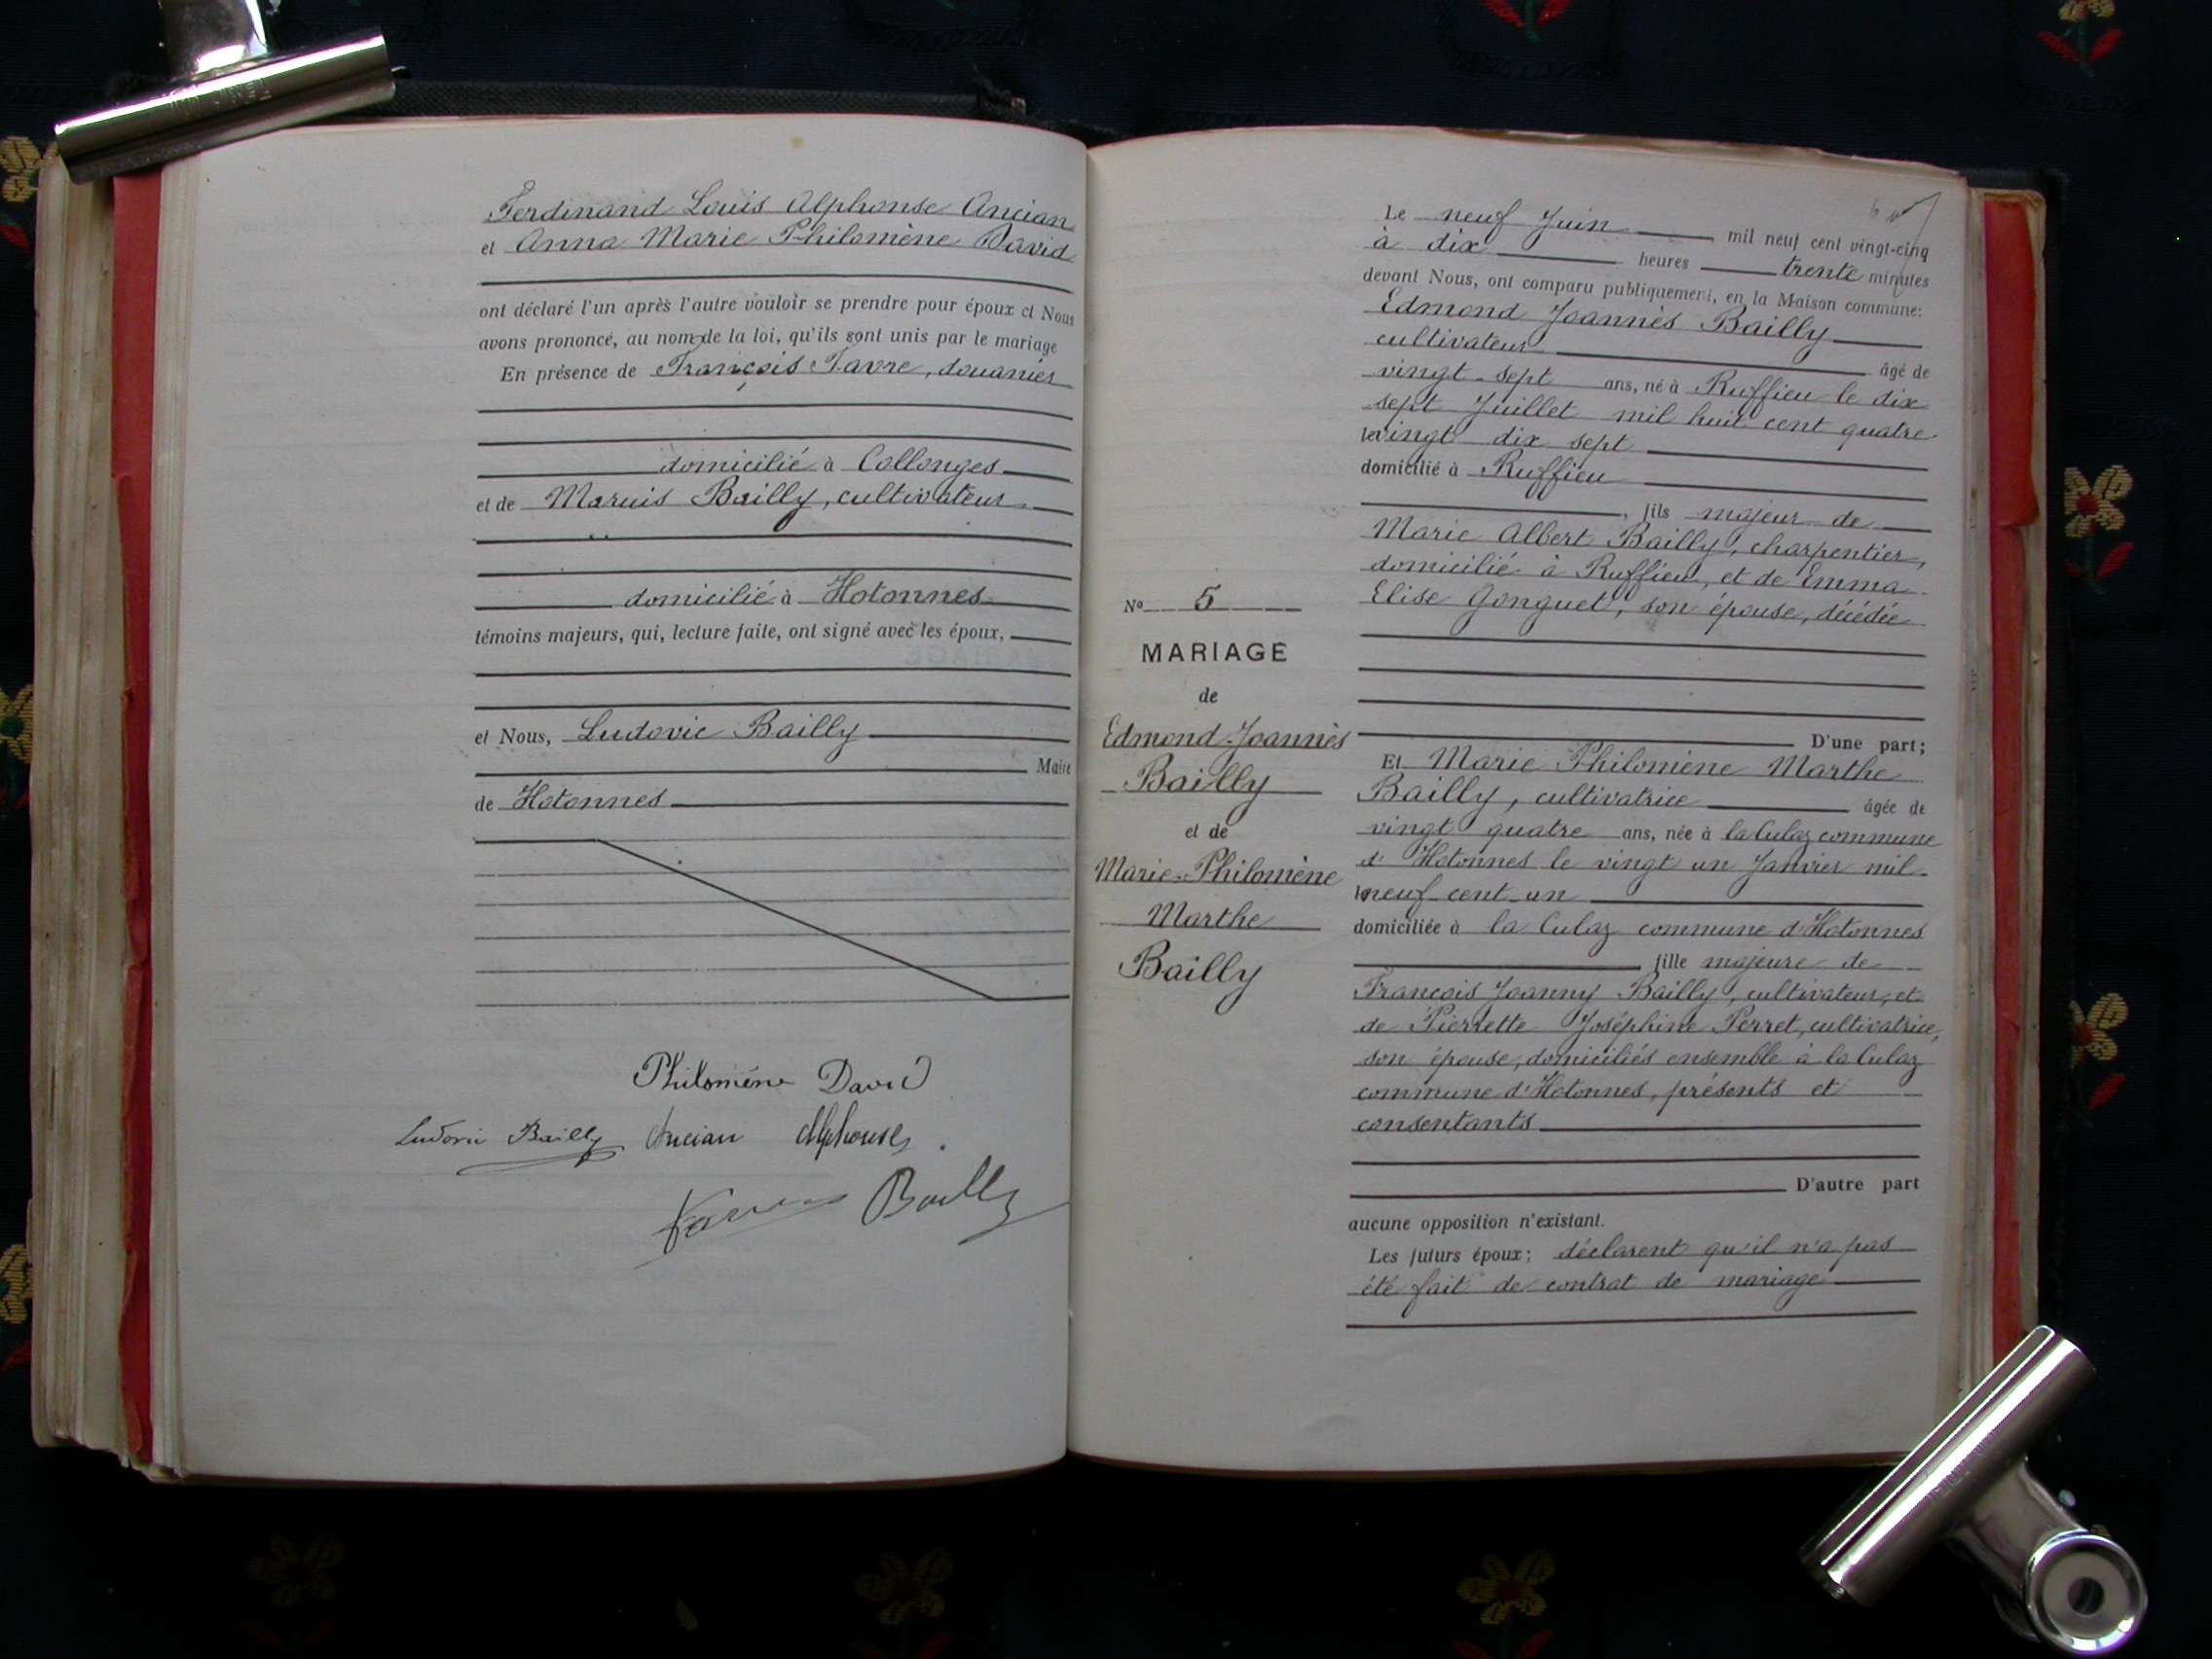 Ferdinand Louis Alphonse Ancian
et Anna Marie Philomène David
ont déclaré l'un après l'autre vouloir se prendre pour époux et Nous
avons prononcé, au nom de la loi, qu'ils sont unis par le mariage
En présence de François Favre, douanier
domicilié à Collonges
et de Maruis Bailly, cultivateur
domicilié à Hotonnes
témoins majeurs, qui, lecture faite, ont signé avec les époux,
et Nous, Ludovic Bailly
Maire
de Hotonnes
Philomène David
Ludovic Bailly Ancian Alphonse
Bailly
Le neuf Juin mil neuf cent vingt-cinq
à dix heures trente minutes
devant Nous, ont comparu publiquement, en la Maison commune:
Edmond Joannès Bailly
cultivateur âgé de
vingt-sept ans, né à Ruffieu le dix
sept Juillet mil huit cent quatre
vingt dix sept
domicilié à Ruffieu
, fils majeur de
Marie Albert Bailly, charpentier,
domicilié à Ruffieu, et de Emma
Elise Gonguet, son épouse, décédée
D'une part;
Et Marie Philomène Marthe
Bailly, cultivatrice âgée de
vingt quatre ans, née à la Culaz commune
d'Hotonnes le vingt un Janvier mil
neuf cent un
domiciliée à la Culaz commune d'Hotonnes
fille majeure de
François Joanny Bailly, cultivateur, et
de Pierrette Joséphine Perret, cultivatrice,
son épouse, domiciliés ensemble à la Culaz
commune d'Hotonnes, présents et
consentants
D'autre part
aucune opposition n'existant.
Les futurs époux; déclarent qu'il n'a pas
été fait de contrat de mariage
No 5
MARIAGE
de
Edmond-Joannès
Bailly
et de
Marie-Philomène
Marthe
Bailly